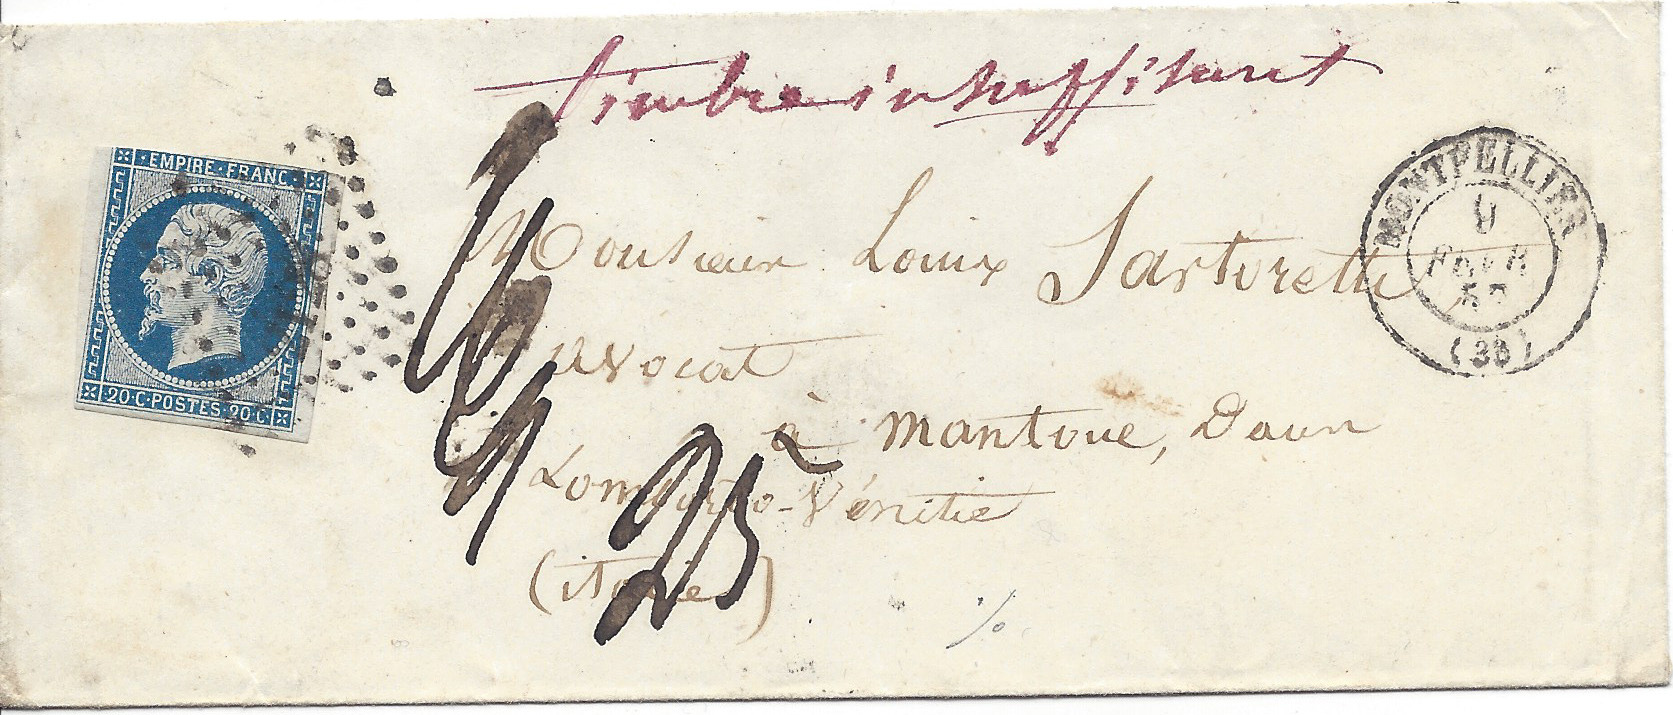 Timbre insuffisant
EMPIRE · FRANC
20·C·POSTES·20·C
MONTPELLIER
9
FEVR
(33)
Monsieur Louis Sartoretti
avocat
à Mantoue, Dans
Lombardo-Vénitie
(italie)
25